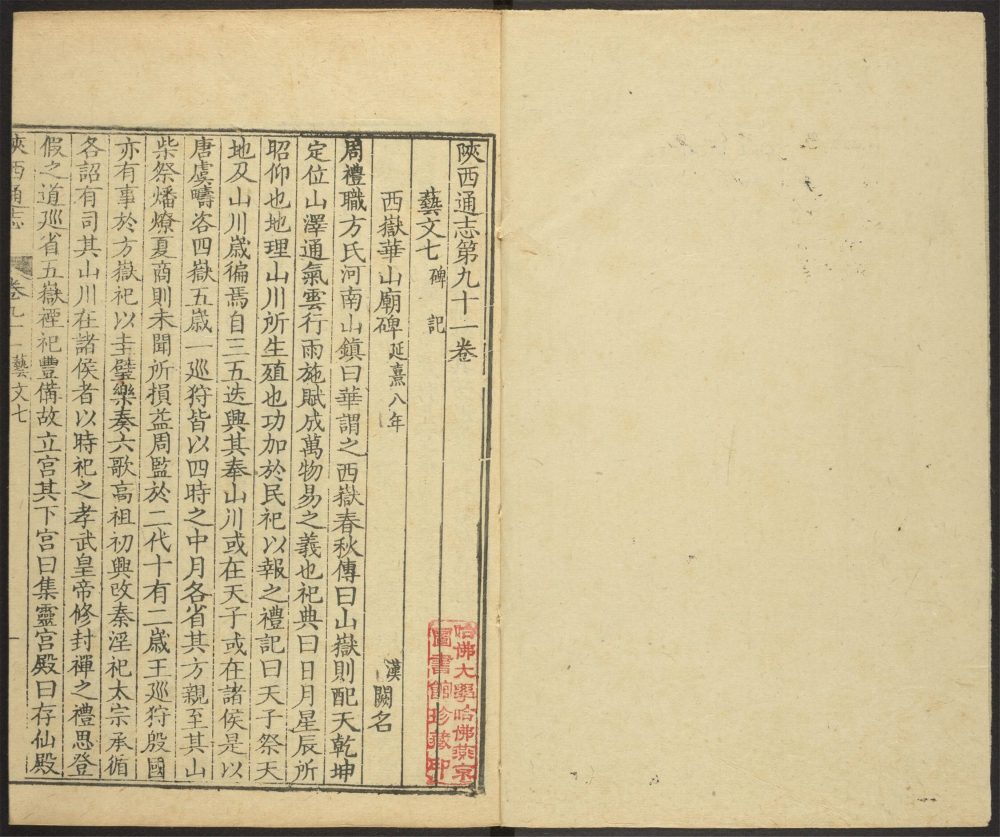 陝西通志第九十一卷
藝文七 碑 記
西嶽華山廟碑 延熹八年 漢 闕名
周禮職方氏河南山鎮曰華謂之西嶽春秋傳曰山嶽則配天乾坤
定位山澤通氣雲行雨施賦成萬物易之義也祀典曰日月星辰所
昭仰也地理山川所生殖也功加於民祀以報之禮記曰天子祭天
地及山川歲徧焉自三五迭興其奉山川或在天子或在諸侯是以
唐虞疇咨四嶽五歲一巡狩皆以四時之中月各省其方親至其山
柴祭燔燎夏商則未聞所損益周監於二代十有二歲王巡狩殷國
亦有事於方嶽祀以圭璧樂奏六歌高祖初興改秦淫祀太宗承循
各詔有司其山川在諸侯者以時祀之孝武皇帝修封禪之禮思登
假之道巡省五嶽禋祀豐備故立宮其下宮曰集靈宮殿曰存仙殿
陝西通志 卷九十一 藝文七 一
哈佛大學哈佛燕京
圖書館珍藏印